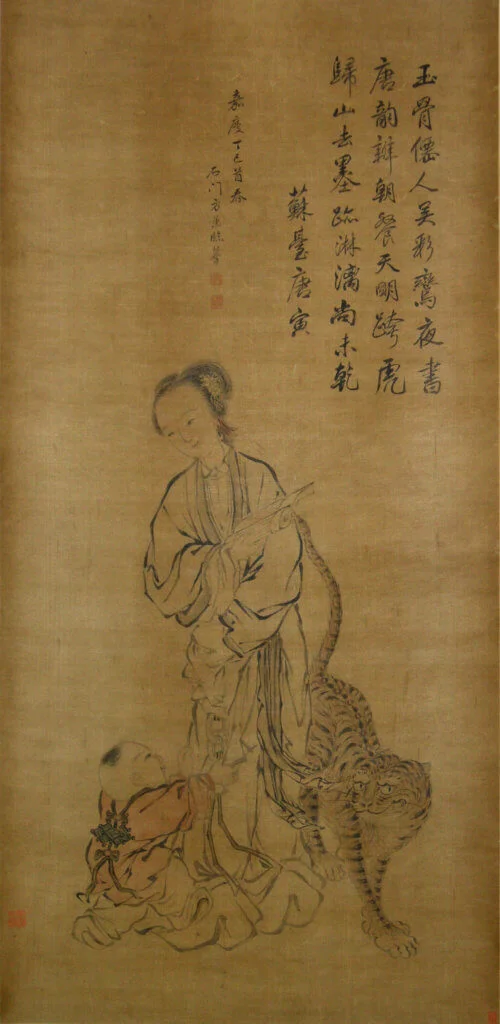 玉骨僊人吳彩鸞夜書
唐韵辦朝餐天明跨虎
歸山去墨跡淋漓尚未乾
蘇臺唐寅
嘉慶丁巳首春
石门方薰臨